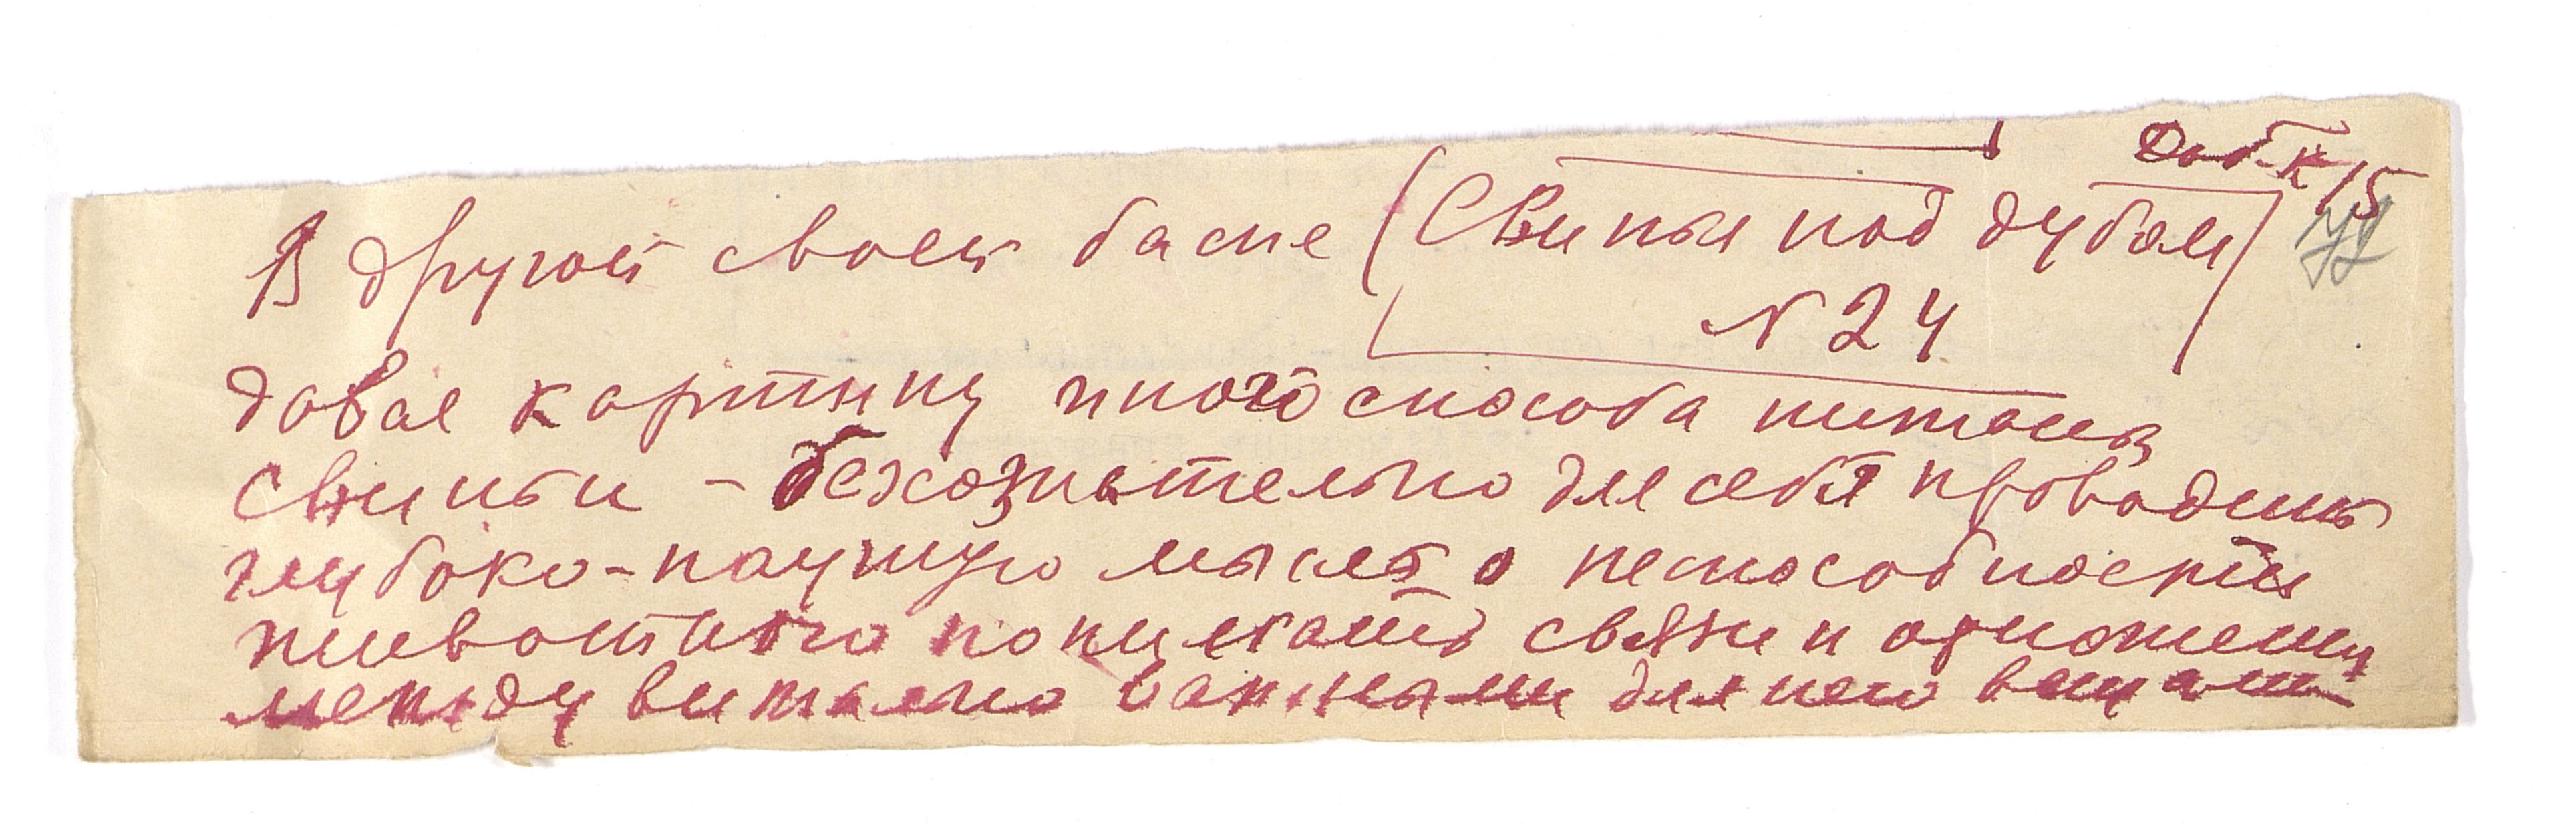 Доб. к 15
В другой своей басне (Свинья под дубом)
N 24
давая картину иного способа питания
свиньи – безсознательно для себя проводит
глубоко-научную мысль о неспособности
животного понимать связи и отношения
между витально важными для него вещами